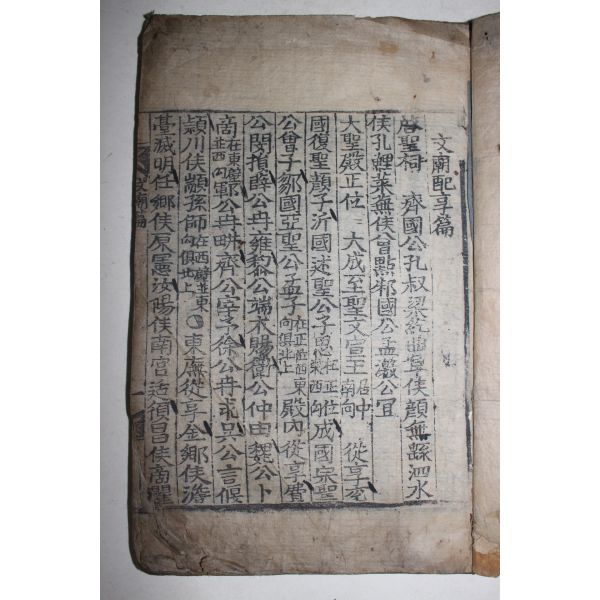 文廟配享篇
啓聖祠 齊國公孔叔梁紇曲阜侯顏無繇泗水
侯孔鯉萊蕪侯曾點邾國公孟激公宜
大聖殿正位 大成至聖文宣王居中南向 從享
國復聖顏子沂國述聖公子思在正位東西向成國宗聖
公曾子鄒國亞聖公孟子在正位西東向俱北上殿內從享費
公閔損薛公冉雍黎公端木賜衛公仲由魏公卜
商在東壁西向鄆公冉耕齊公宰予徐公冉求吳公言偃
潁川侯顓孫師在西壁東向俱北上○東廡從享金鄉侯澹
臺滅明任鄉侯原憲汝陽侯南宮适須昌侯商瞿
文廟篇 一